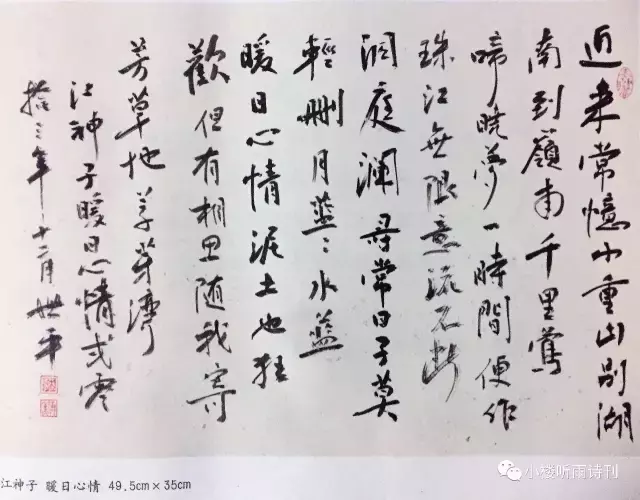 近来常憶小重山别湖
南到嶺南千里鶯
啼曉夢一時間便作
珠江無限意流不断
洞庭澜尋常日子莫
輕刪月蓝〻水蓝
暖日心情泥土也狂
歡但有相思随我寄
芳草地芽灣
江神子暖日心情弍零
拾三年十二月平
江神子 暖日心情 49.5cm×35cm
小楼听雨诗刊